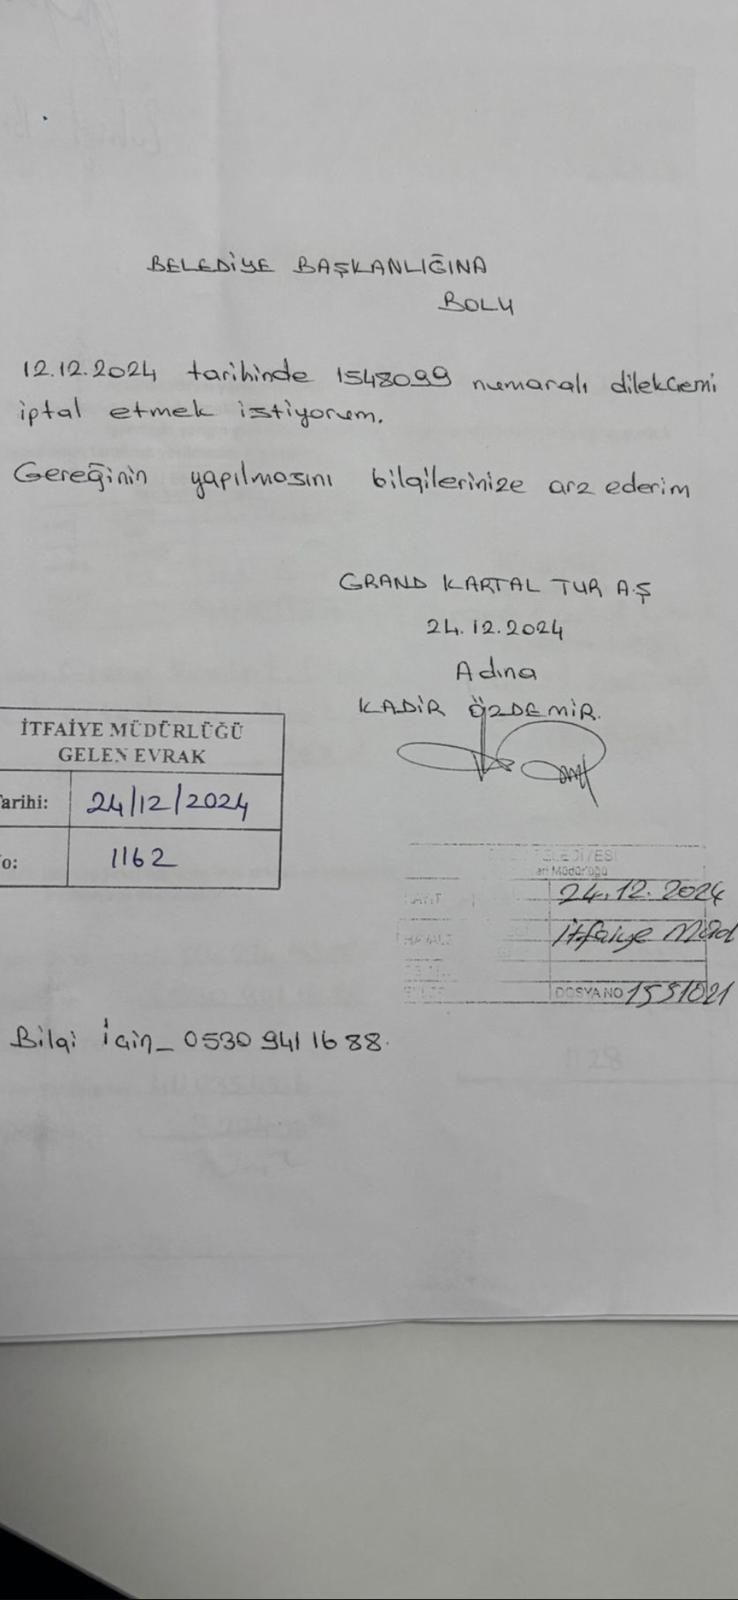 BELEDİYE BAŞKANLIĞINA
BOLU
12.12.2024 tarihinde 1548099 numaralı dilekçemi
iptal etmek istiyorum.
Gereğinin yapılmasını bilgilerinize arz ederim
GRAND KARTAL TUR A.Ş
24.12.2024
Adına
KADİR ÖZDEMİR.
İTFAİYE MÜDÜRLÜĞÜ
GELEN EVRAK
arihi: 24/12/2024
o: 1162
LEDİYESİ
Müdürlüğü
24.12.2024
İtfaiye Müd
DOSYA NO 1551021
Bilgi İçin_ 0530 941 16 88.